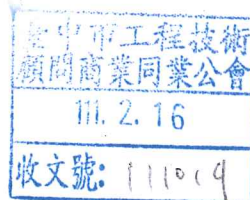 臺中市工程技術
顧問商業同業公會
111. 2. 16
收文號: 111019